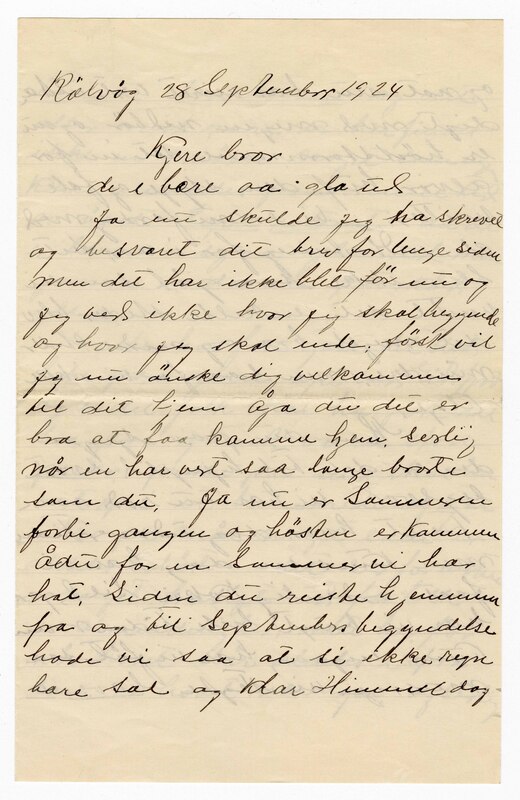 Kölvåg 28 September 1924
Kjere bror
de e bære aa gla ud
Ja nu skulde jeg ha skrevet
og besvaret dit brev for lenge siden
men det har ikke blet för nu og
jeg ved ikke hvor jeg skal begynde
og hvor jeg skal inde, föršt vil
jeg nu önske dig velkammen
til dit hjem åja du det er
bra at faa kamme hjem. serlig
når en har vert saa lange borte
som du. Ja nu er Sommeren
forbi gangen og hösten er kammen
Ådu for en Sommer vi har
hat, Siden du reiste hjemmen
fra og til Septembers begyndelse
hade vi saa at si ikke regn
bare sol og klar Himmel dag